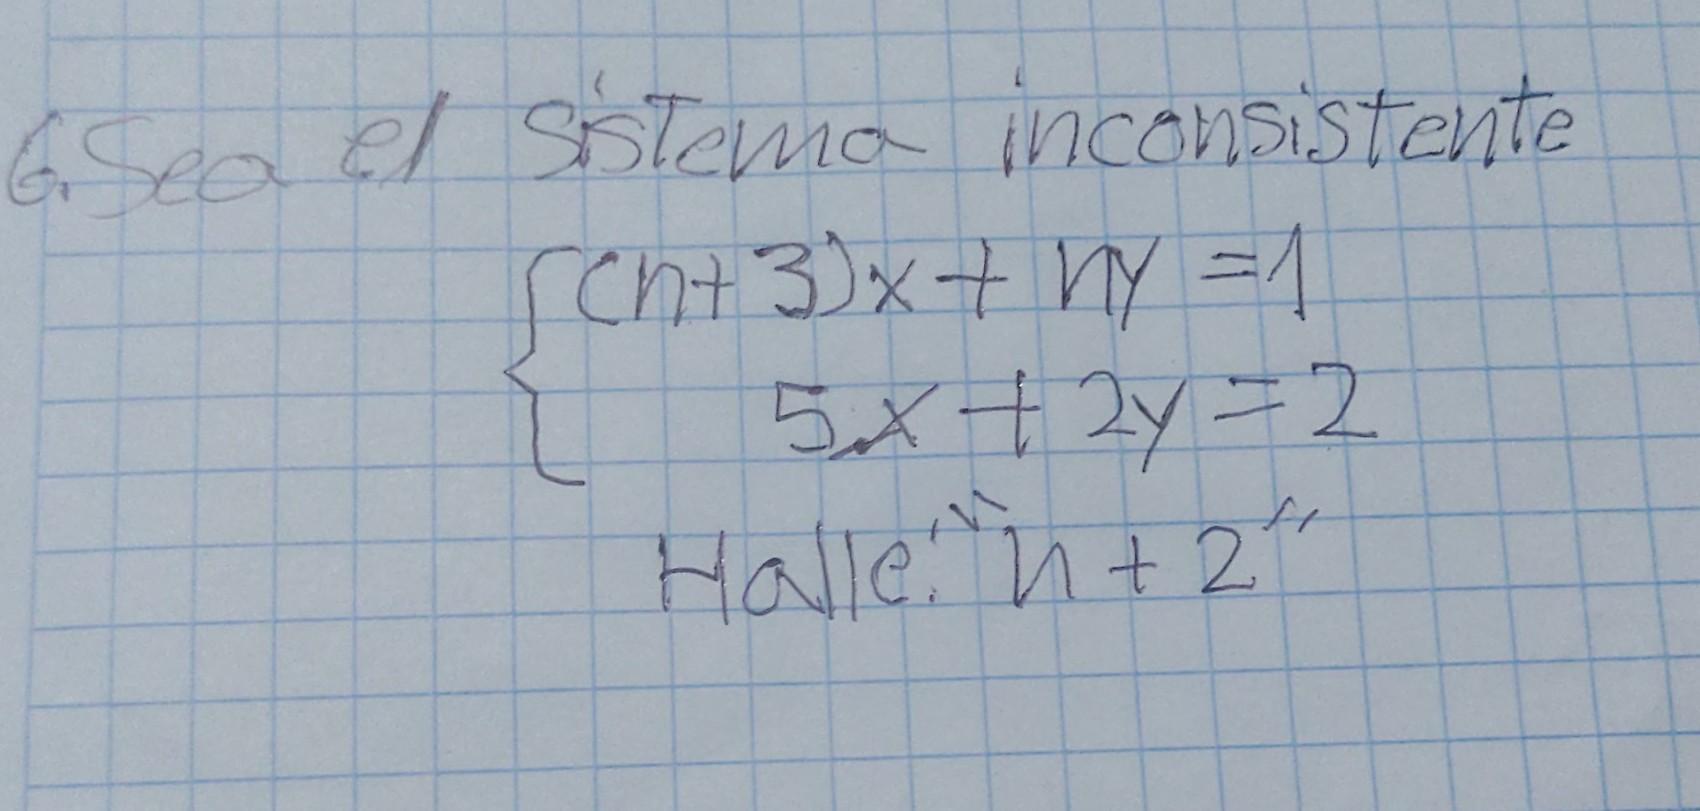 6. Sea el sistema inconsistente
(n+3)x + ny = 1
5x + 2y = 2
Halle: "n + 2"